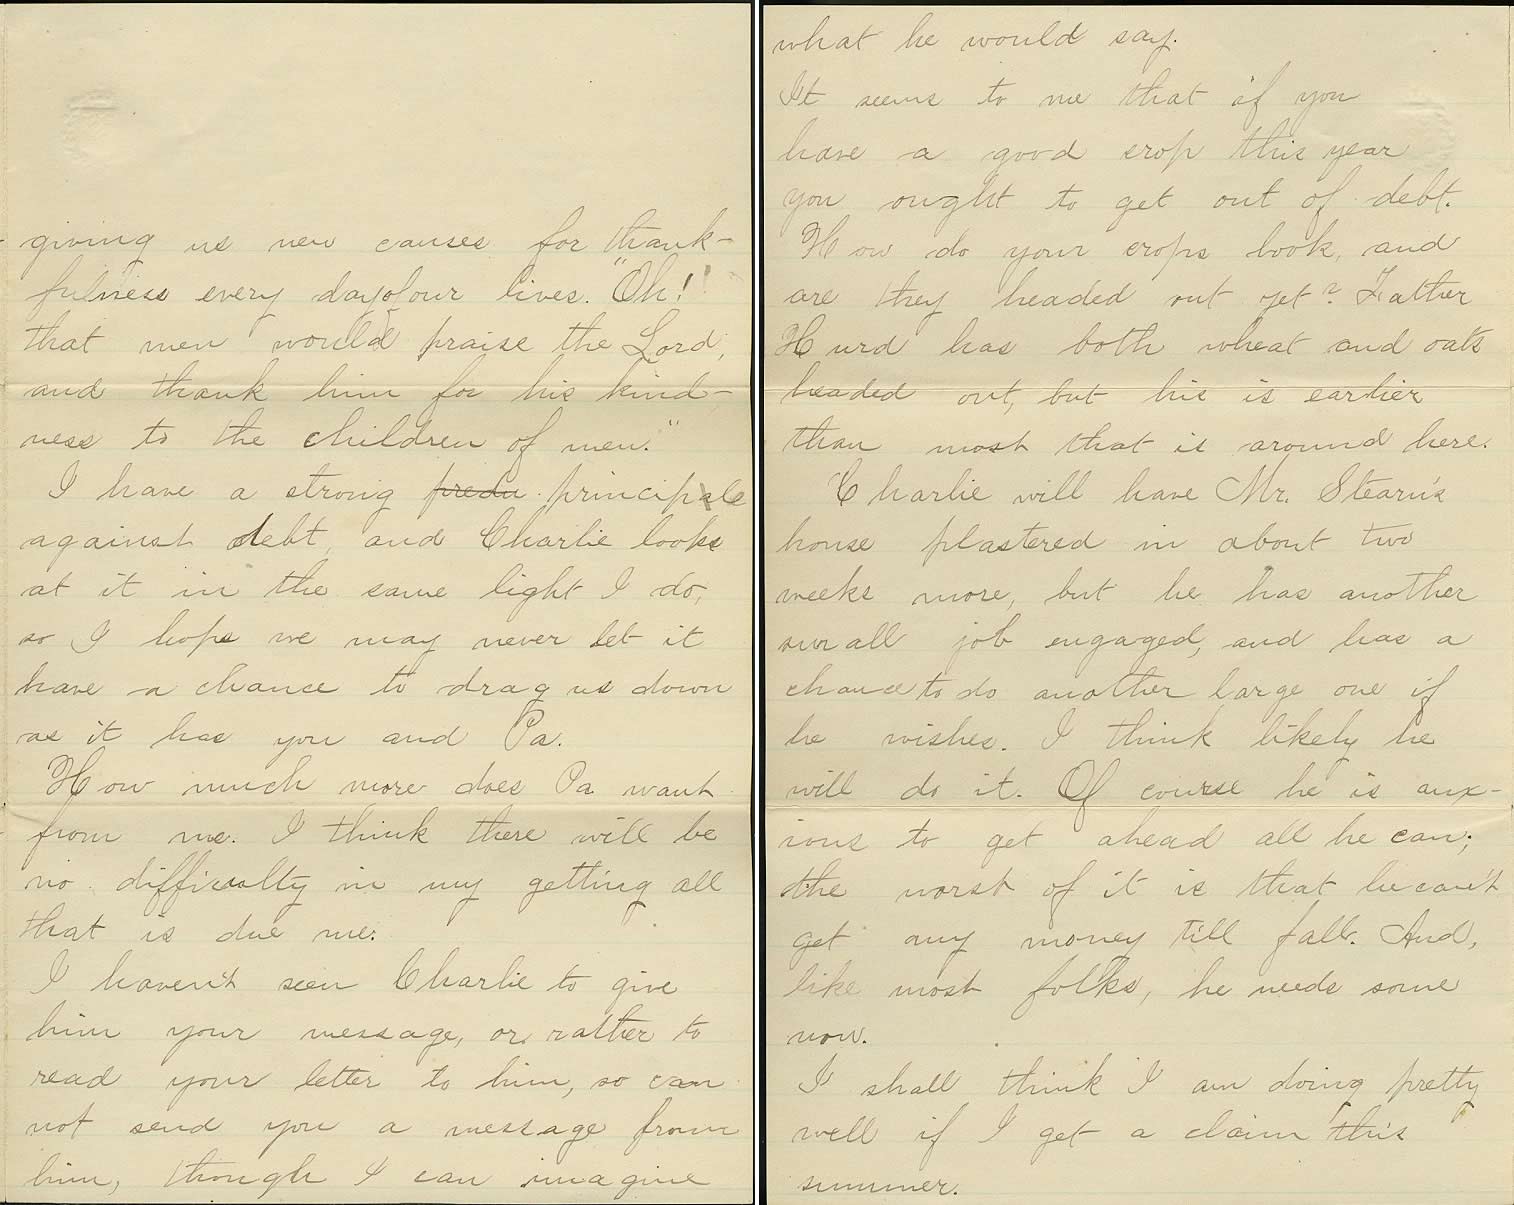 giving us new causes for thank-
fulness every day of our lives. "Oh!
that men would praise the Lord,
and thank him for his kind-
ness to the children of men."
I have a strong predu principle
against debt, and Charlie looks
at it in the same light I do,
so I hope we may never let it
have a chance to drag us down
as it has you and Pa.
How much more does Pa want
from me. I think there will be
no difficulty in my getting all
that is due me.
I haven't seen Charlie to give
him your message, or rather to
read your letter to him, so can
not send you a message from
him, though I can imagine
what he would say.
It seems to me that if you
have a good crop this year
you ought to get out of debt.
How do your crops look, and
are they headed out yet? Father
Hurd has both wheat and oats
headed out, but his is earlier
than most that is around here.
Charlie will have Mr. Stearn's
house plastered in about two
weeks more, but he has another
small job engaged, and has a
chance to do another large one if
he wishes. I think likely he
will do it. Of course he is anx-
ious to get ahead all he can;
the worst of it is that he can't
get any money till fall. And,
like most folks, he needs some
now.
I shall think I am doing pretty
well if I get a claim this
summer.